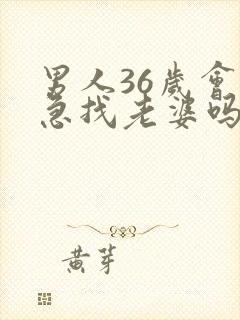 男人36歲會
急找老婆吗
黄芽